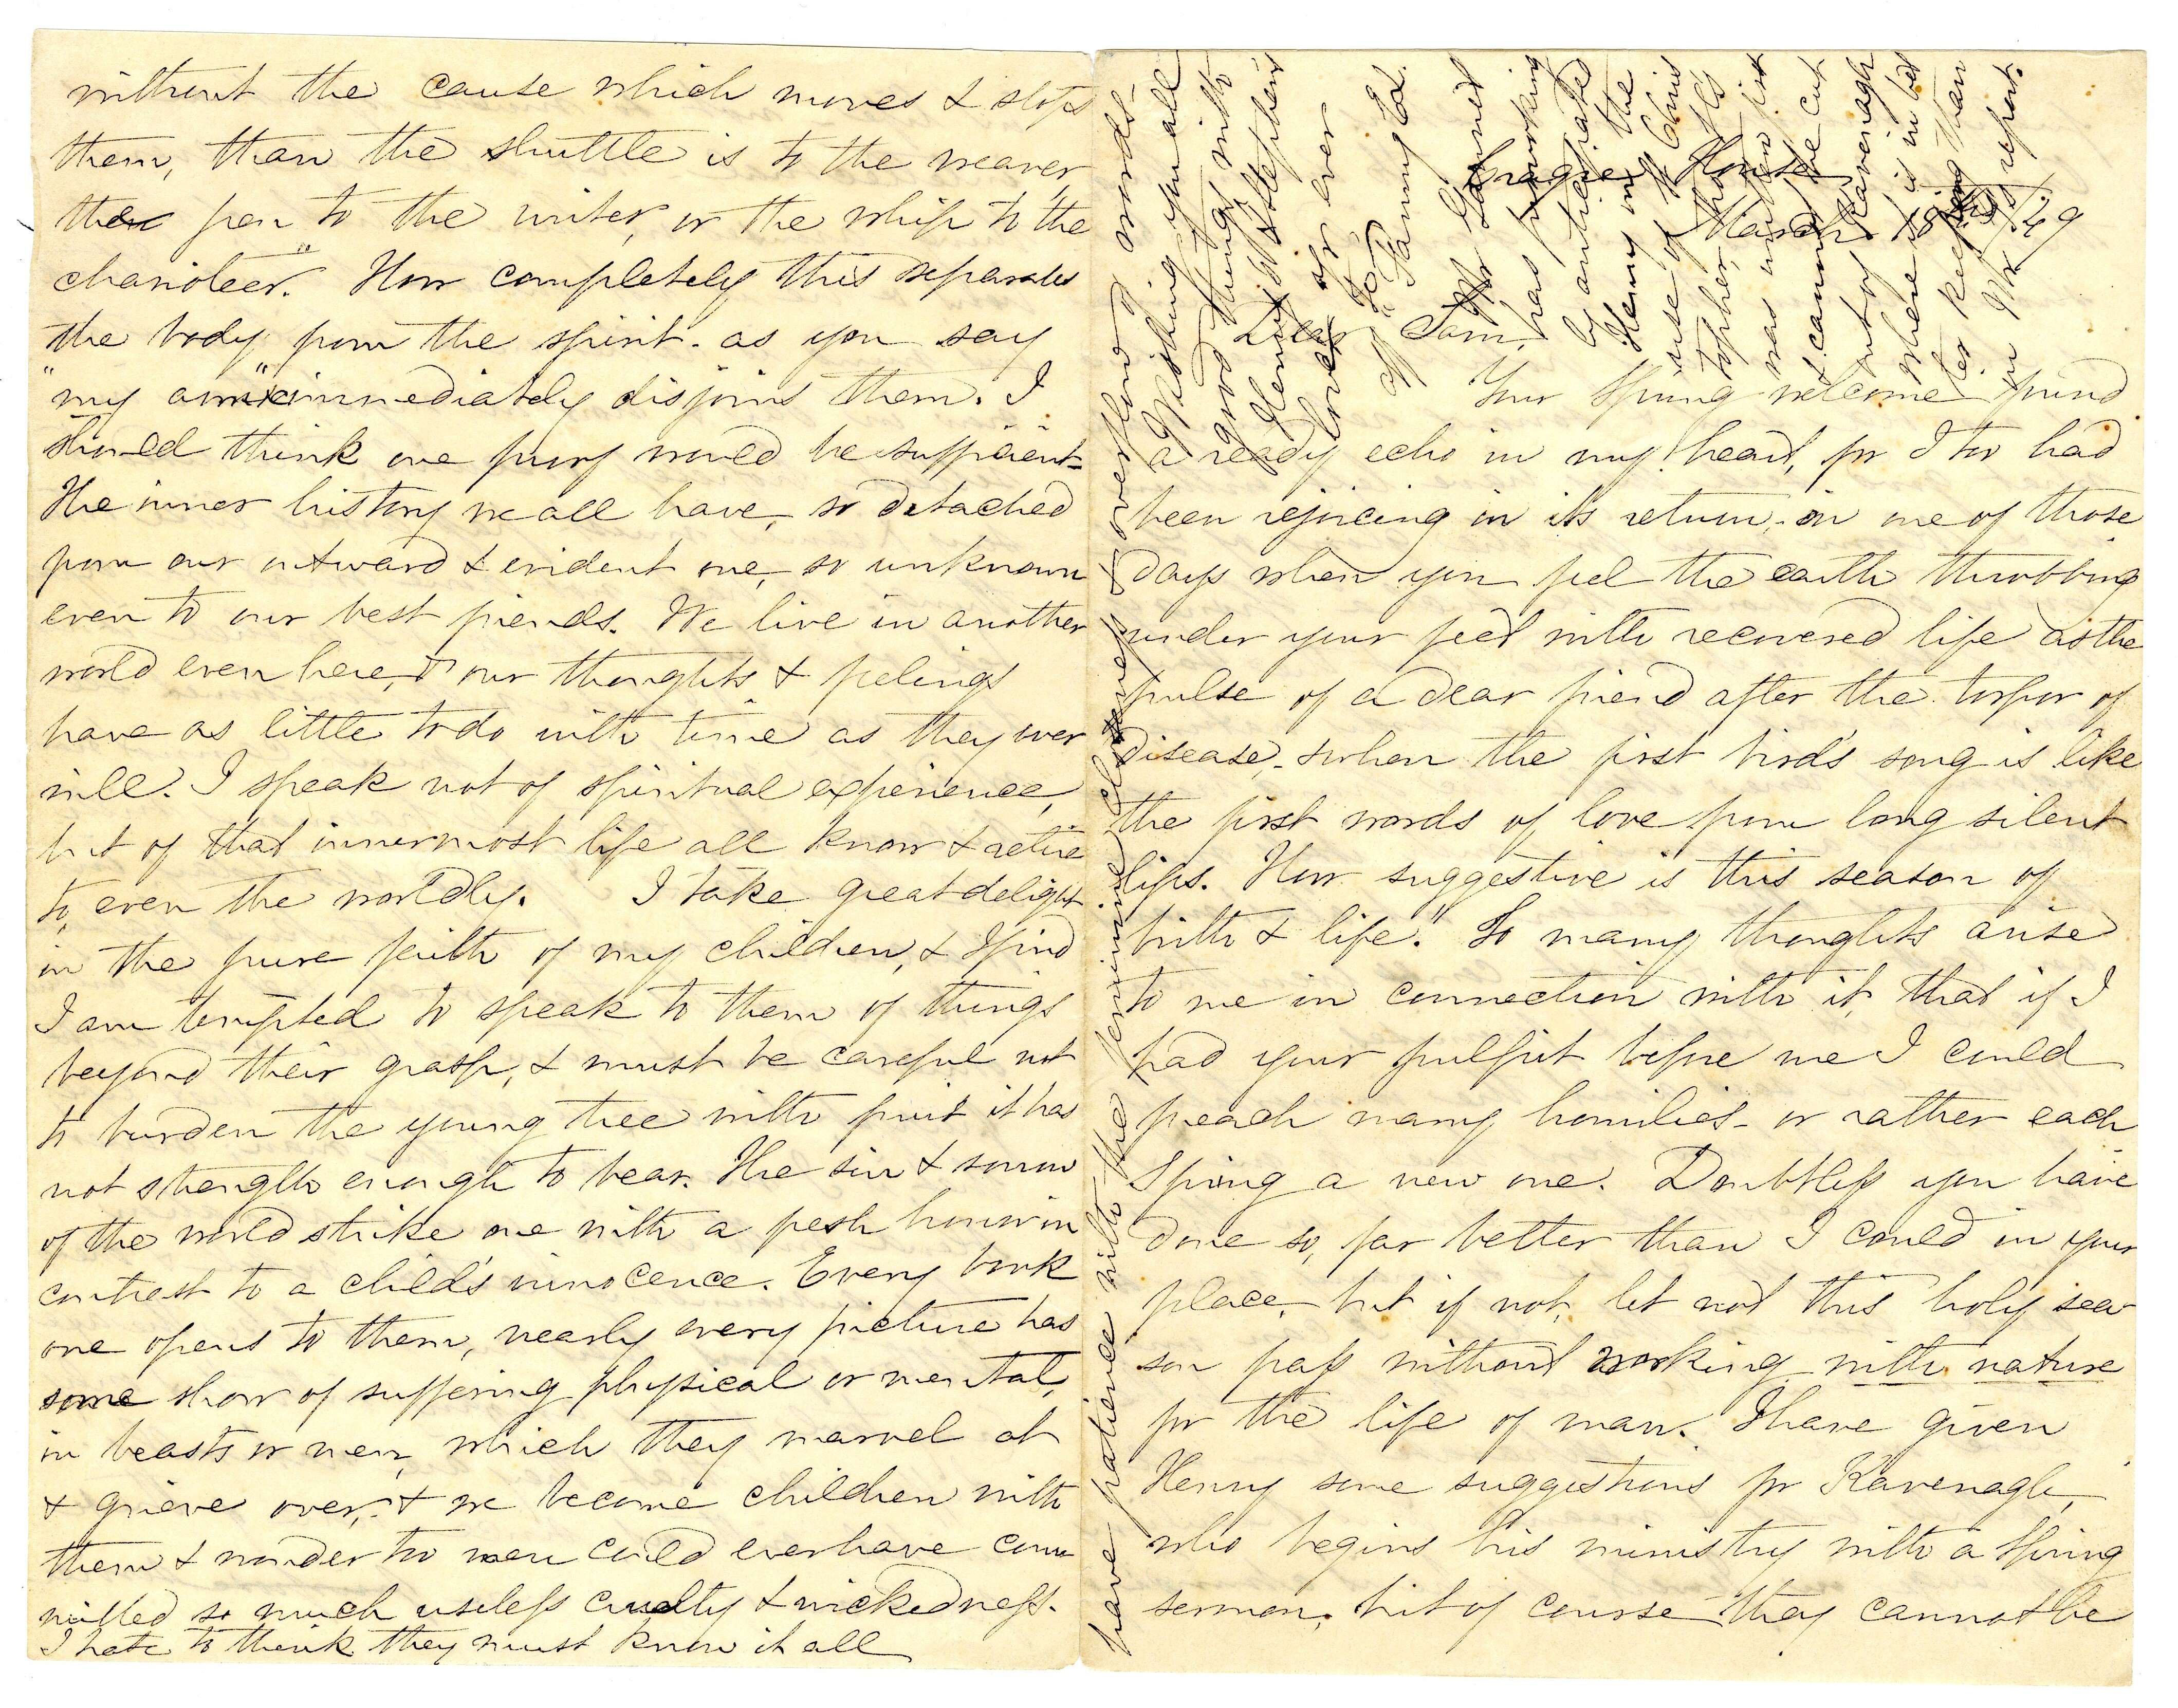 without the cause which moves & stops
them, than the shuttle is to the weaver,
the pen to the writer, or the whip to the
charioteer." How completely this separates
the body from the spirit. as you say
"my arm" immediately disjoins them. I
should think one proof would be sufficient-
The inner history we all have, so detached
from our outward & evident one, so unknown
even to our best friends. We live in another
world even here, & our thoughts & feelings
have as little to do with time as they ever
will. I speak not of spiritual experience,
but of that innermost life all know & retire
to, even the worldly. I take great delight
in the pure faith of my children, & find
I am tempted to speak to them of things
beyond their grasp, & must be careful not
to burden the young tree with fruit it has
not strength enough to bear. The sin & sorrow
of the world strike one with a fresh horror in
contrast to a child's innocence. Every book
one opens to them, nearly every picture has
some show of suffering physical or mental,
in beasts or men, which they marvel at
& grieve over, & we become children with
them & wonder too men could ever have com
mitted so much useless cruelty & wickedness.
I hate to think they must know it all
Craigie House
March 18th /49
Dear Sam,
Your Spring welcome found
a ready echo in my heart, for I too had
been rejoicing in its return, on one of those
days when you feel the earth throbbing
under your feet with recovered life as the
pulse of a dear friend after the torpor of
disease, & when the first bird's song is like
the first words of love from long silent
lips. How suggestive is this season of
birth & life." So many thoughts arise
to me in connection with it, that if I
had your pulpit before me I could
preach many homilies - or rather each
Spring a new one. Doubtless you have
done so, far better than I could in your
place, but if not, let not this holy sea
son pass without working with nature
for the life of man. I have given
Henry some suggestions for Kavenagh,
who begins his ministry with a Spring
sermon, but of course they cannot be
have patience with the feminine & overflow of words-
Wishing you all
good things with
Henry's
love, ever
Fanny E L.
has
by
Henry the
use of
topher,
was
I cannot
out of Kavenagh
where it is in bed
keeping than
in report.